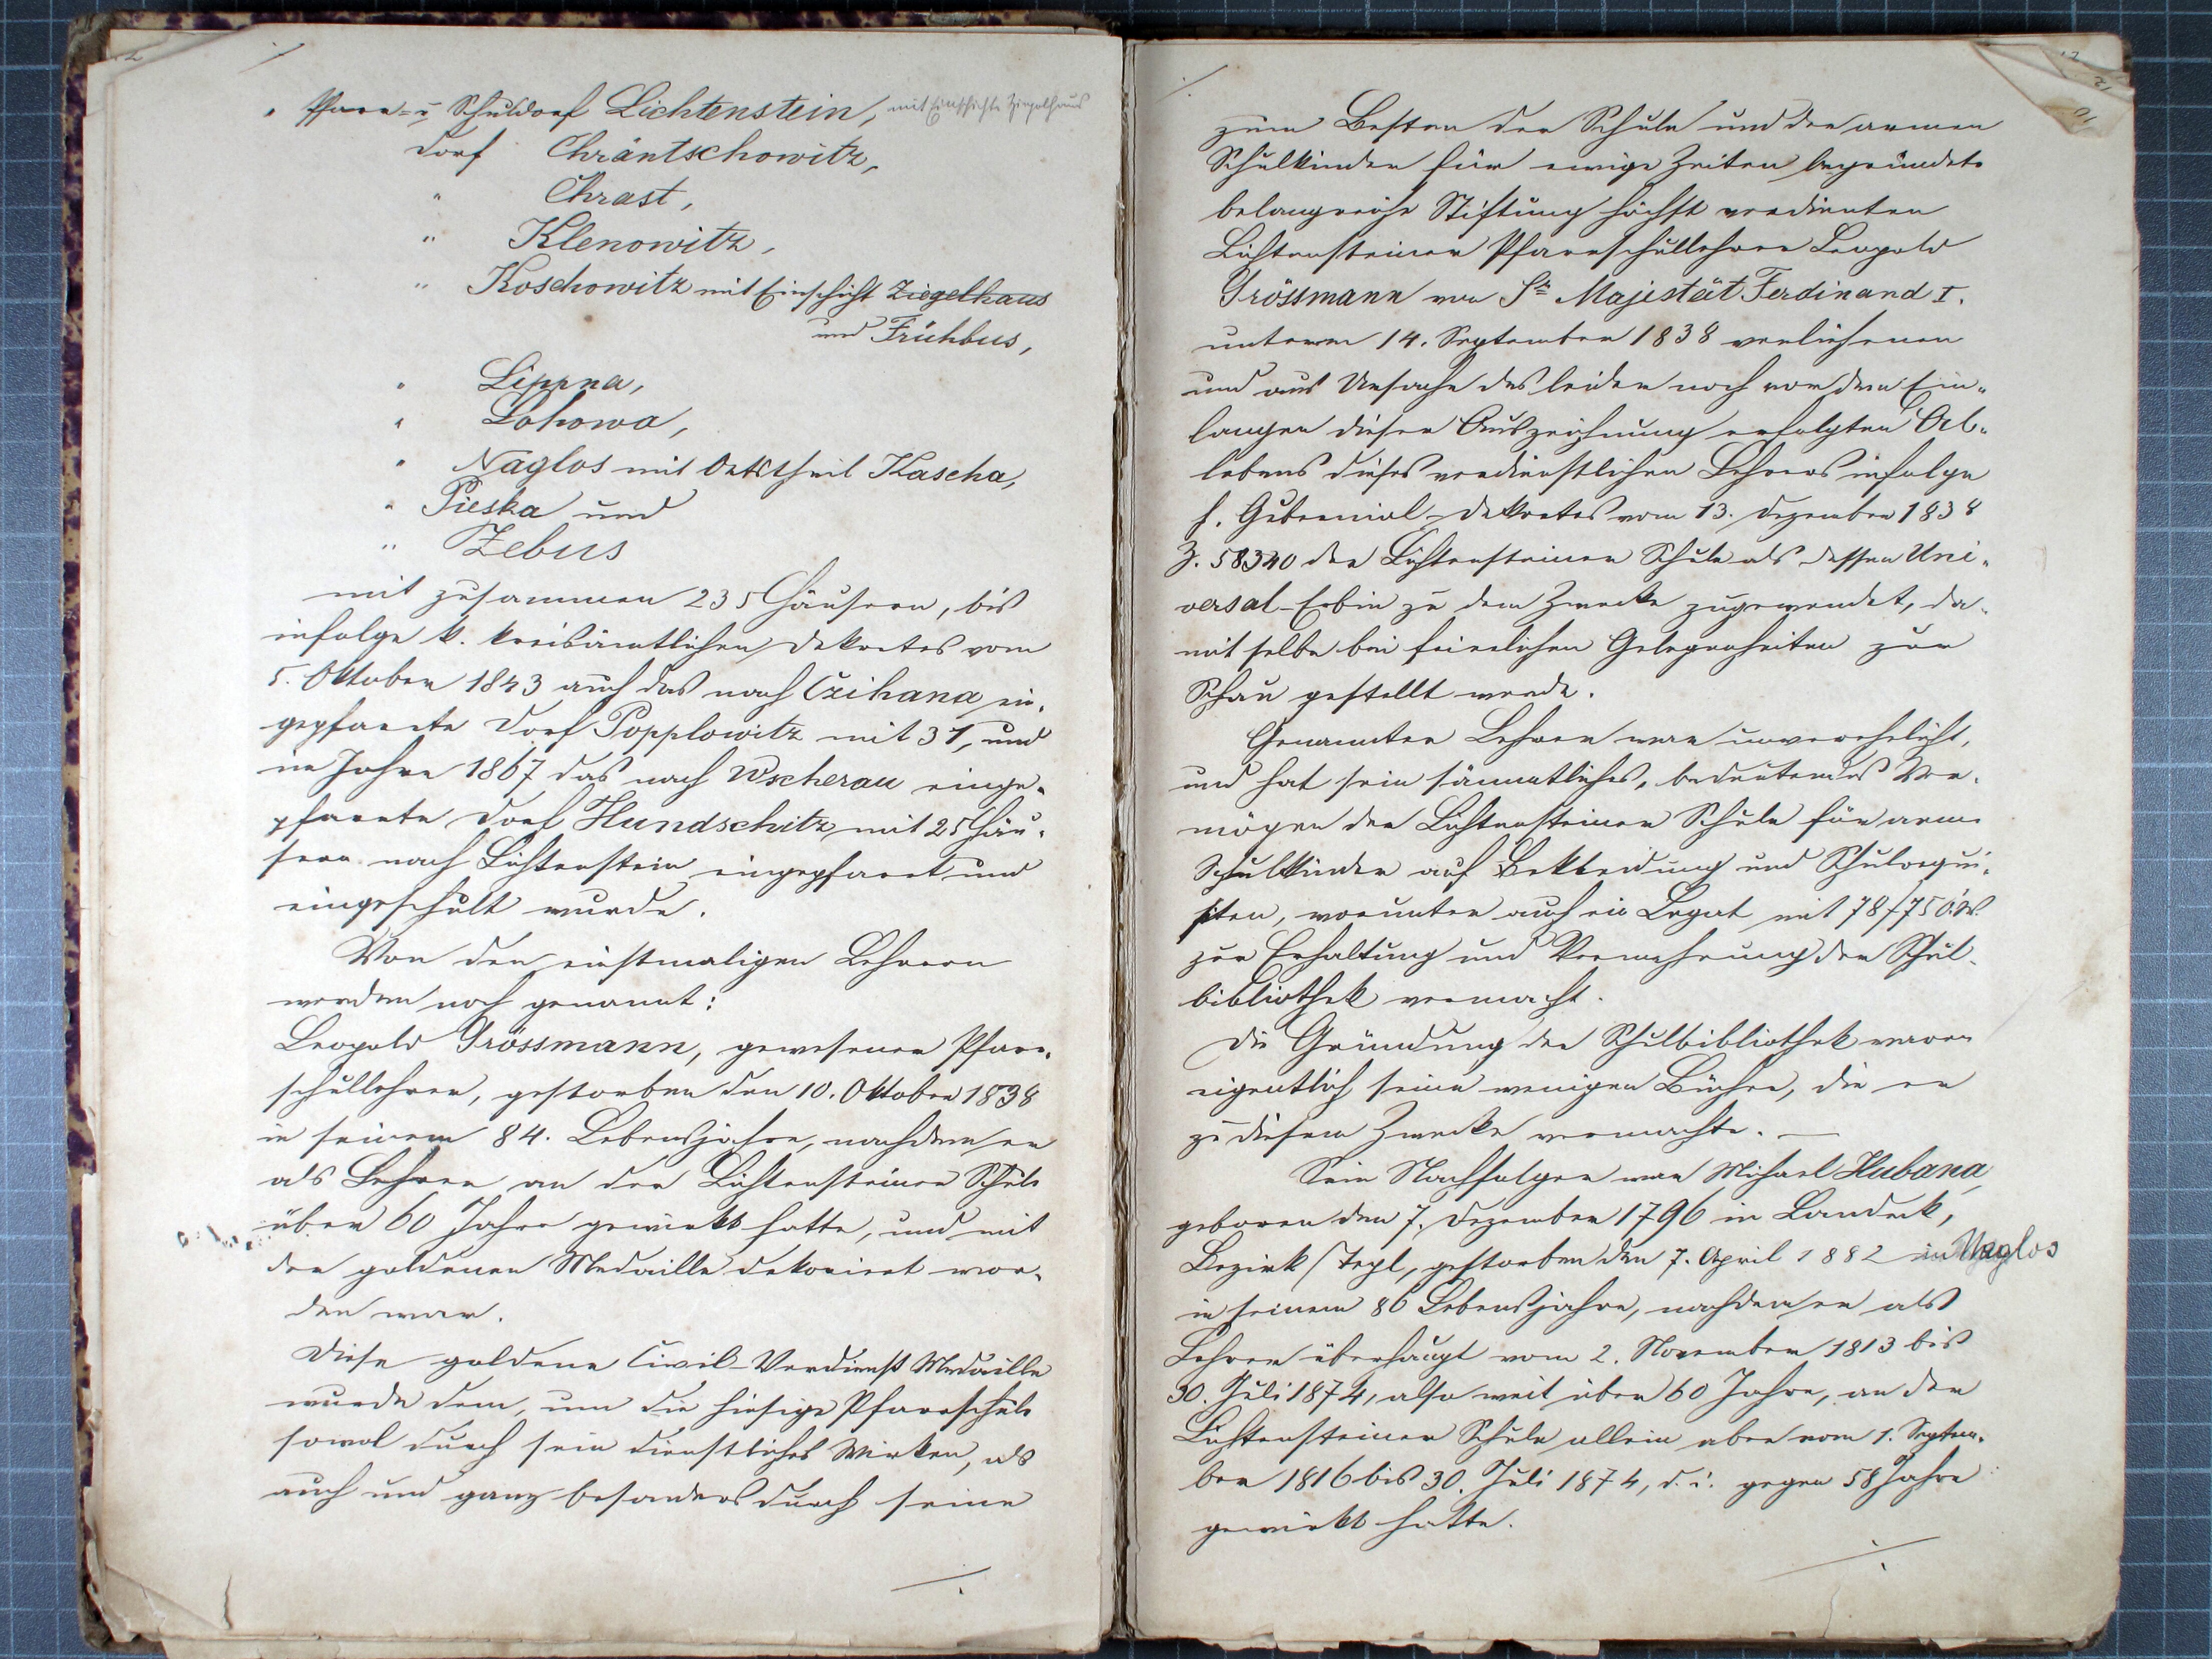 Pfarr- u. Schuldorf Lichtenstein, mit Einschichte Ziegelhaus
Dorf Chräntschowitz,
" Chrast,
" Klenowitz,
" Koschowitz mit Einschicht Ziegelhaus
und Frühbus,
" Lippna,
" Lohowa,
" Naglos mit Ortstheil Kascha,
" Pieska und
" Zebus
mit zusammen 235 Häusern, bis
infolge k. kreisämtlichen Dekretes vom
5. Oktober 1843 auch das nach Czihana ein-
gepfarrte Dorf Popplowitz mit 31, und
im Jahre 1867 das nach Wscherau einge-
pfarrte Dorf Hundschitz mit 25 Häu-
sern nach Lichtenstein eingepfarrt und
eingeschult wurde.
Von den einstmaligen Lehrern
werden noch genannt:
Leopold Grössmann, gewesener Pfarr-
schullehrer, gestorben den 10. Oktober 1838
in seinem 84. Lebensjahre, nachdem er
als Lehrer an der Lichtensteiner Schule
über 60 Jahre gewirkt hatte, und mit
der goldenen Medaille dekorirt wor-
den war.
Diese goldene Civil-Verdienst Medaille
wurde dem, um die hiesige Pfarrschule
sowol durch sein dienstliches Wirken, als
auch und ganz besonders durch seine
./.
./.
zum Besten der Schule und der armen
Schulkinder für ewige Zeiten begründete
belangreiche Stiftung höchst verdienten
Lichtensteiner Pfarrschullehrer Leopold
Grössmann von Sr. Majestät Ferdinand I.
unterm 14. September 1838 verliehenen
und aus Ursache des leider noch vor dem Ein-
langen dieser Auszeichnung erfolgten Ab-
lebens dieses verdienstlichen Lehrers infolge
h. Gubernial-Dekretes vom 13. Dezember 1838
Z. 58340 der Lichtensteiner Schule als dessen Uni-
versal-Erbin zu dem Zwecke zugewendet, da-
mit selbe bei feierlichen Gelegenheiten zur
Schau gestellt werde.
Genannter Lehrer war unverehelicht,
und hat sein sämmtliches, bedeutendes Ver-
mögen der Lichtensteiner Schule für arme
Schulkinder auf Bekleidung und Schulrequi-
siten, worunter auch ein Legat mit 78 f 75 ö. W.
zur Erhaltung und Vermehrung der Schul-
bibliothek vermacht.
Die Gründung der Schulbibliothek waren
eigentlich seine wenigen Bücher, die er
zu diesem Zwecke vermachte. —
Sein Nachfolger war Michael Hubana,
geboren den 7. Dezember 1796 in Landeck,
Bezirk Tepl, gestorben den 7. April 1882 in Naglos
in seinem 86 Lebensjahre, nachdem er als
Lehrer überhaupt vom 2. November 1813 bis
30. Juli 1874, also weit über 60 Jahre, an der
Lichtensteiner Schule allein aber vom 1. Septem-
ber 1816 bis 30. Juli 1874, d. i. gegen 58 Jahre
gewirkt hatte.
./.